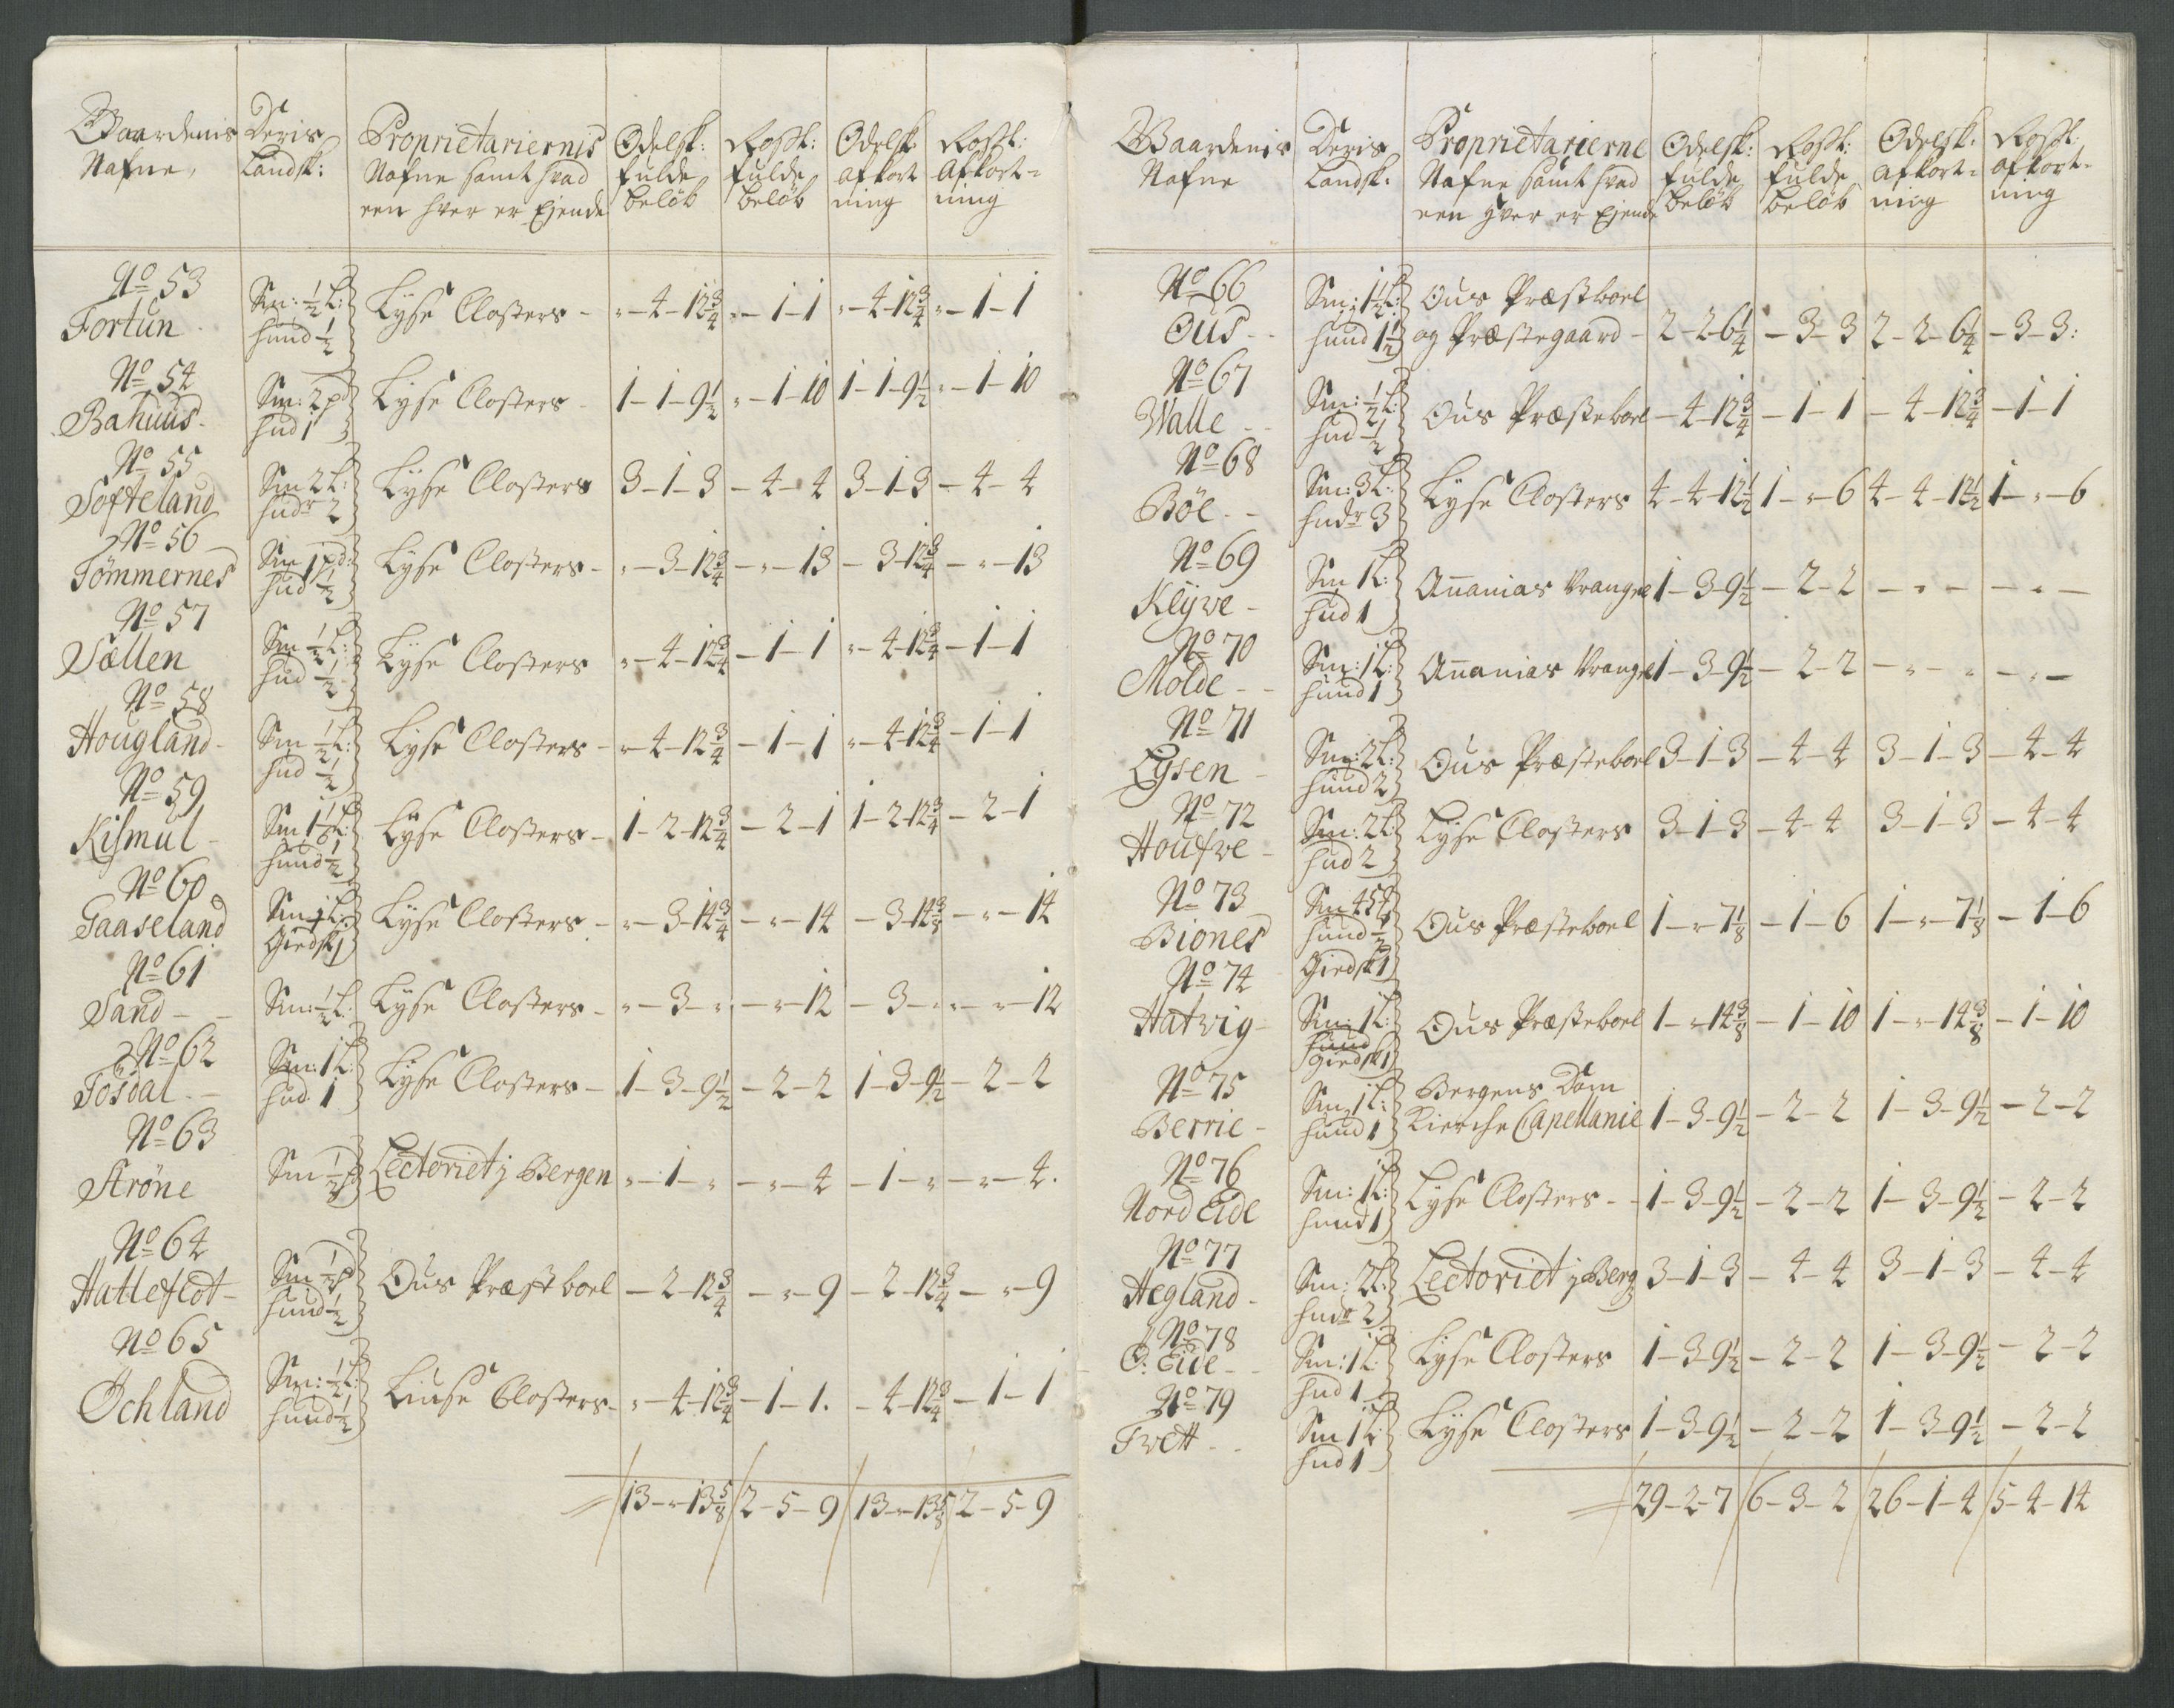 Gaardenis Nafne,	Deris Landsk:	Proprietariernis Nafne samt hvad een hver er Ejende	Odelsk: fulde beløb	Rostk: fulde beløb	Odelsk: afkort ning	Rostk: Afkort= ning
No 53 Fortun	Sm: ½ L: hund ½	Lyse Closters -	" - 4 - 12¾	" - 1 - 1	" - 4 - 12¾	" - 1 - 1
No 54 Bahuus	Sm: 2 pd hud 1	Lyse Closters -	1 - 1 - 9½	" - 1 - 10	1 - 1 - 9½	" - 1 - 10
No 55 Søfteland	Sm 2 L: hudr 2	Lyse Closters	3 - 1 - 3	- 4 - 4	3 - 1 - 3	- 4 - 4
No 56 Tømmernes	Sm 1 pd: hud ½	Lyse Closters -	" - 3 - 12¾	- " - 13	- 3 - 12¾	- " - 13
No 57 Sællen	Sm ½ L: hud ½	Lyse Closters	" - 4 - 12¾	- 1 - 1	" - 4 - 12¾	- 1 - 1
No 58 Hougland -	Sm ½ L: hud ½	Lyse Closters -	" - 4 - 12¾	- 1 - 1	" - 4 - 12¾	- 1 - 1
No 59 Kismul -	Sm 1 L: hund ½	Lyse Closters -	1 - 2 - 12¾	- 2 - 1	1 - 2 - 12¾	- 2 - 1
No 60 Gaaseland	Sm 1 L: Giedsk 1	Lyse Closters -	" - 3 - 14¾	- " - 14	- 3 - 14⅜	- " - 14
No 61 Sand - -	Sm: ½ L:	Lyse Closters -	" - 3 - "	- " - 12	- 3 - "	- " - 12
No 62 Tøsdal - -	Sm: 1 L: hud 1	Lyse Closters -	1 - 3 - 9½	- 2 - 2	1 - 3 - 9½	- 2 - 2
No 63 Strøne	Sm ½ pd	Lectoriet j Bergen	" - 1 - "	- " - 4	- 1 - "	- " - 4.
No 64 Hatleflot -	Sm ½ pd hund ½	Ous Præst boel	- 2 - 12¾	- " - 9	- 2 - 12¾	- " - 9
No 65 Øchland	Sm: ½ L: hund ½	Liuse Closters -	" - 4 - 12¾	- 1 - 1.	- 4 - 12¾	- 1 - 1
13 - " - 13⅝	2 - 5 - 9	13 - " - 13⅝	2 - 5 - 9
Gaardenis Nafne	Deris Landsk:	Proprietarierne Nafne samt hvad een hver er Ejende	Odelsk: fulde beløb	Rostk: fulde beløb	Odelsk: afkort= ning	Rostk: afkort= ning
No 66 Ous - -	Sm: 1½ L: hund 1½	Ous Præstboel og Præstegaard -	2 - 2 - 6¼	- 3 - 3	2 - 2 - 6¼	- 3 - 3:
No 67 Walle - -	Sm: ½ L: hud ½	Ous Præsteboel	- 4 - 12¾	- 1 - 1	- 4 - 12¾	- 1 - 1
No 68 Bøe - -	Sm: 3 L: hudr 3	Lyse Closters	4 - 4 - 12½	1 - " - 6	4 - 4 - 12½	1 - " - 6
No 69 Klyve -	Sm 1 L: hud 1	Ananias Wrangel	1 - 3 - 9½	- 2 - 2	- " -	- " -
No 70 Molde - -	Sm: 1 L: hund 1	Ananias Wrangel	1 - 3 - 9½	- 2 - 2	- " - "	- " -
No 71 Lysen -	Sm: 2 L: hund 2	Ous Præsteboel	3 - 1 - 3	- 4 - 4	3 - 1 - 3	- 4 - 4
No 72 Houfve -	Sm: 2 L: hud 2	Lyse Closters	3 - 1 - 3	- 4 - 4	3 - 1 - 3	- 4 - 4
No 73 Biones	Sm hund ½ Giedsk 1	Ous Præsteboel	1 - " - 7⅛	- 1 - 6	1 - " - 7⅛	- 1 - 6
No 74 Hatvig -	Sm: 1 L: hund giedsk 1	Ous Præsteboel	1 - " - 14⅜	- 1 - 10	1 - " - 14⅜	- 1 - 10
No 75 Berrie -	Sm: 1 L: hund 1	Bergens Dom Kierche Capellanie	1 - 3 - 9½	- 2 - 2	1 - 3 - 9½	- 2 - 2
No 76 Nord Eide	Sm: 1 L: hund 1	Lyse Closters - -	1 - 3 - 9½	- 2 - 2	1 - 3 - 9½	- 2 - 2
No 77 Hegland -	Sm: 2 L: hudr 2	Lectoriet j Berg	3 - 1 - 3	- 4 - 4	3 - 1 - 3	- 4 - 4
No 78 O: Eide - -	Sm: 1 L: hud 1	Lyse Closters	1 - 3 - 9½	- 2 - 2	1 - 3 - 9½	- 2 - 2
No 79 Tvett - -	Sm 1 L: hud 1	Lyse Closters	1 - 3 - 9½	- 2 - 2	1 - 3 - 9½	- 2 - 2
29 - 2 - 7	6 - 3 - 2	26 - 1 - 4	5 - 4 - 14